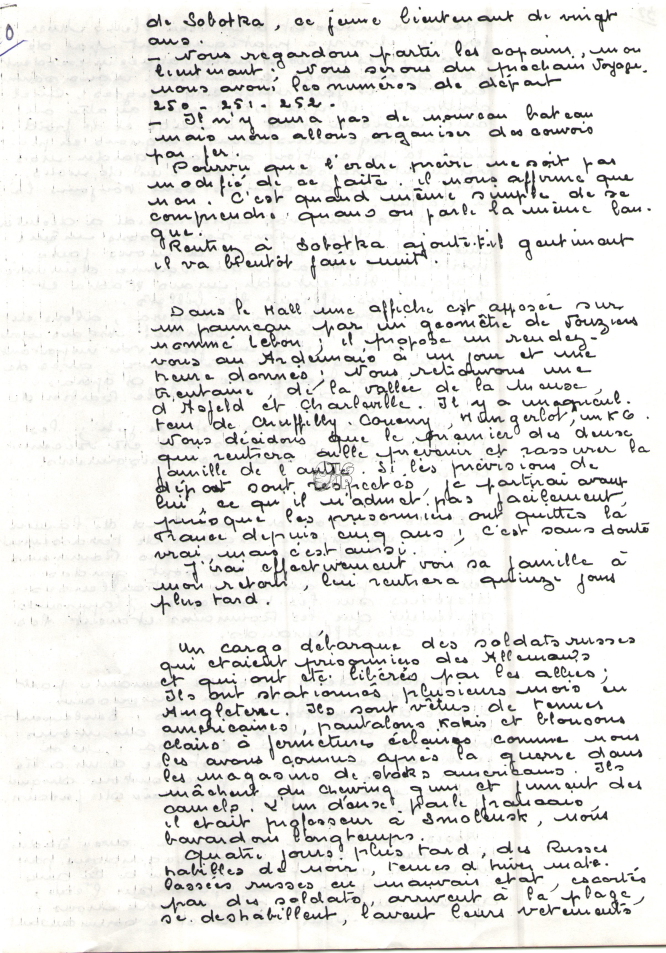 0
de Sobotka, ce jeune lieutenant de vingt
ans.
- Nous regardons partir les copains, mon
lieutenant. Nous serons du prochain voyage.
nous avons les numéros de départ
250 - 251 - 252.
- Il n'y aura pas de nouveau bateau
mais nous allons organiser des convois
par fer.
Pourvu que l'ordre ne soit pas
modifié de ce fait. il nous affirme que
non. C'est quand même simple de se
comprendre quand on parle la même lan-
gue.
Rentrez à Sobotka ajoute-t-il gentiment
il va bientôt faire nuit.
Dans le Hall une affiche est apposée sur
un panneau par un géomètre de Vouziers
nommé Lebon ; il propose un rendez-
vous aux Ardennais à un jour et une
heure donnés. Nous retrouvons une
trentaine, de la vallée de la Meuse,
d'Asfeld et Charleville. Il y a un agricul.
teur de Hungerlot, un KG.
Nous décidons que le premier des deux
qui rentrera aille prévenir et rassurer la
famille de l'autre. Si les prévisions de
départ sont respectées, je partirai avant
lui, ce qu'il n'admet pas facilement,
puisque les prisonniers ont quittés la
France depuis cinq ans ; c'est sans doute
vrai mais c'est ainsi.
J'irai effectivement voir sa famille à
mon retour, lui rentrera quinze jours
plus tard.
Un cargo débarque des soldats russes
qui étaient prisonniers des Allemands
et qui ont été libérés par les alliés ;
Ils ont stationnés plusieurs mois en
Angleterre. Ils sont vêtus de tenues
américaines, pantalons kakis et blousons
clairs à fermetures éclairs comme nous
les avons connus après la guerre dans
les magasins de stocks américains. Ils
mâchent du chewing gum et fument des
camels. L'un d'eux parle français,
il était professeur à Smolensk, nous
bavardons longtemps.
Quatre jours plus tard, des Russes
habillés de noir, tenues d'hiver mate.
lassées russes en mauvais état, escortés
par des soldats, arrivent à la plage,
se déshabillent, lavent leurs vêtements